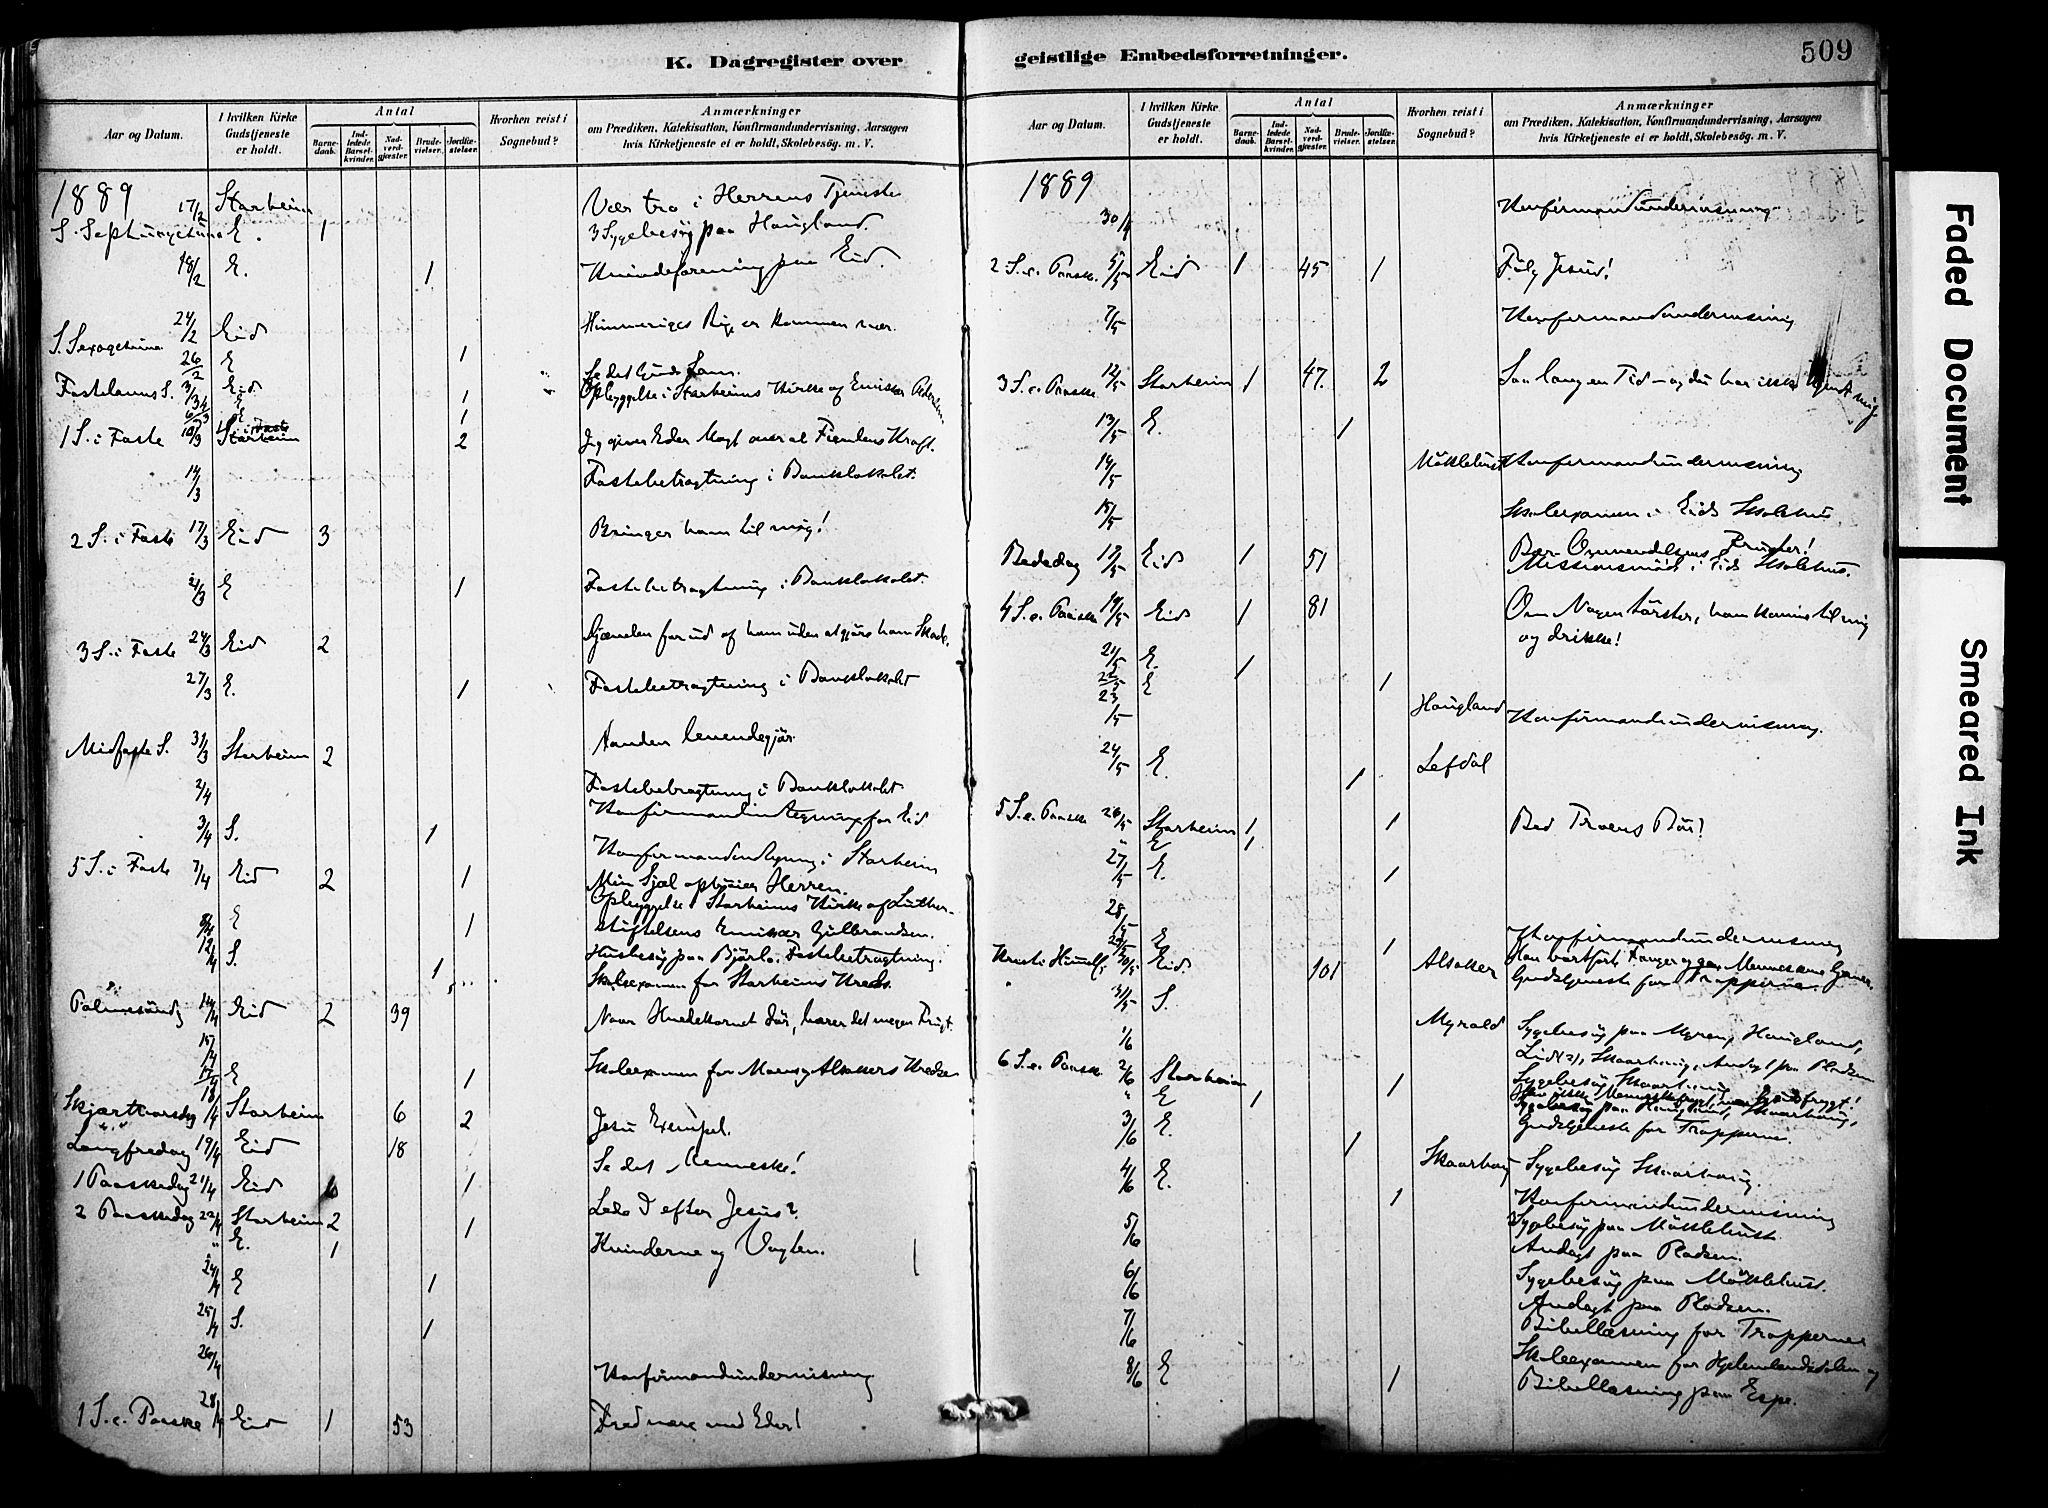 K. Dagregister over
geistlige Embedsforretninger.
509
Aar og Datum.
I hvilken Kirke Gudstjeneste er holdt.
Antal
Barnedaab.
Indledede Barselkvinder.
Nadverdgjæster.
Brudevielser.
Jordfæstelser.
Hvorhen reist i Sognebud?
Anmærkninger
om Prædiken, Katekisation, Konfirmandundervisning, Aarsagen
hvis Kirketjeneste ei er holdt, Skolebesög. m. V.
1889 17/2 Starheim Vær tro i Herrens Tjeneste
S. Septuagesima E. 1 3 Sygebesög paa Haugland.
18/2 E. 1 Kvindeforening paa Eid.
S. Sexagesima 24/2 Eid Himmeriges Rige er kommen nær.
26/2 E 1
Fastelavns S. 3/3 Eid Se det Guds Lam.
1 Opbyggelse i Starheims Kirke af Emissær
6/3 E 1
1 S. i Faste 10/3 Starheim 2 Jeg giver Eder Magt over al Fiendens Kraft.
14/3 Fastebetragtning i Banklokalet.
2 S. i Faste 17/3 Eid 3 Bringer ham til mig!
21/3 E 1 Fastebetragtning i Banklokalet
3 S. i Faste 24/3 Eid 2 Djævelen for ud af ham uden at gjøre ham Skade.
27/3 E. 1 Fastebetragtning i Banklokalet
Midfaste S. 31/3 Starheim 2 Aanden levendegjør
2/4 Fastebetragtning i Banklokalet
3/4 S. 1 Konfirmandindtegning for Eid
Konfirmandindtegning i Starheim
5 S. i Faste 7/4 Eid 2 1 Min Sjæl ophøier Herren.
8/4 E 1 Opbyggelse i Starheims Kirke af Luther-
stiftelsens Emissær Gulbrandsen.
12/4 S. 1 Husbesög paa Bjørlo. Fastebetragtning.
Skoleexamen for Starheims Kreds.
Palmesöndag 14/4 Eid 2 39 Naar Hvedekornet dör, bærer det megen Frugt
15/4
17/4 E 1 Skoleexamen for og Alsakers Kredse
Skjærthorsdag 18/4 Starheim 6 2 Jesu Exempel.
Langfredag 19/4 Eid 18 Se det Menneske!
1 Paaskedag 21/4 Eid 1 Lede I efter Jesus?
2 Paaskedag 22/4 Starheim 2 1 Kvinderne og Vagten.
" E. 1
24/4 E 1
25/4 S. 1
26/4 Konfirmandundervisning
1 S. e. Paaske 28/4 Eid 1 53 Fred være med Eder!
Aar og Datum.
I hvilken Kirke Gudstjeneste er holdt.
Antal
Barnedaab.
Indledede Barselkvinder.
Nadverdgjæster.
Brudevielser.
Jordfæstelser.
Hvorhen reist i Sognebud?
Anmærkninger
om Prædiken, Katekisation, Konfirmandundervisning, Aarsagen
hvis Kirketjeneste ei er holdt, Skolebesög. m. V.
1889
30/4 Konfirmandundervisning
2 S. e. Paaske 5/5 Eid 1 45 1 Fölg Jesus!
7/5 Konfirmandundervisning
3 S. e. Paaske 12/5 Starheim 1 47. 2 Saa lang en Tid – og du har ikke kjendt mig
13/5 E. 1
14/5 Möklebust Konfirmandundervisning
15/5 Skoleexamen i Eids Skolehus
Bededag 17/5 Eid 1 51 Bær Omvendelsens Frugter!
Missionsmöde i Eids Skolehus.
4 S. e. Paaske 19/5 Eid 1 81 Om Nogen törster, han komme til mig
og drikke!
21/5 E. 1
22/5 E 1
23/5 Haugland Konfirmandundervisning.
24/5 E. 1 Lefdal
5 S. e. Paaske 26/5 Starheim 1 1 Bed Troens Bön!
" E 1
27/5 E. 1
28/5 Konfirmandundervisning
29/5 E 1
Kristi Himmelf. 30/5 Eid. 101 Alsaker Han bortførte Fanger og gav Menneskene Gaver
Gudstjeneste for Tropperne.
31/5 S.
1/6 Myrold Sygebesög paa Myren, Haugland,
Skaarhaug, Andagt paa Pladsen
6 S. e. Paaske 2/6 Starheim 1 Sygebesög Skaarhaug
" E 1
3/6 E. 1 Gudstjeneste for Tropperne.
4/6 E. 1 Skaarhaug Sygebesög Skaarhaug.
Konfirmandundervisning
5/6 Sygebesög paa Möklebust
Andagt paa Pladsen.
6/6 Sygebesög paa Möklebust.
Andagt paa Pladsen.
7/6 Bibellæsning for Tropperne
8/6 E 1 Skoleexamen for Hjelmelandsdalen og
Bibellæsning paa Espe.
Faded Document
Smeared Ink